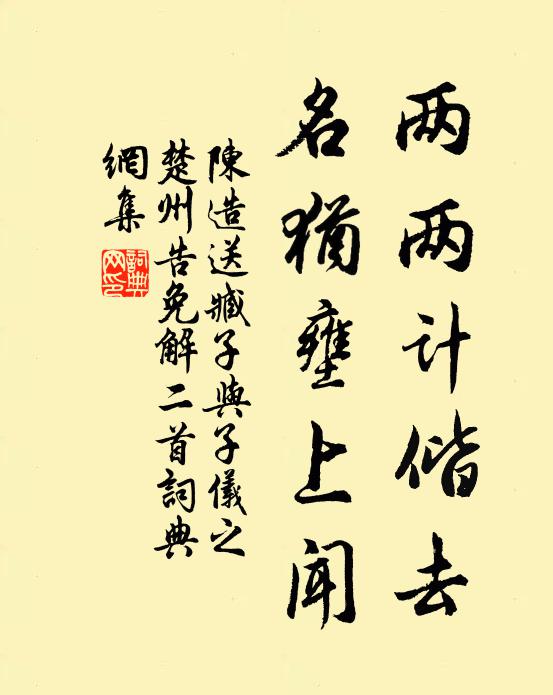 两两计偕去
名犹壅上闻
陳造送臧子與子儀之
楚州告免解二首詞典
網集
詞典
网印